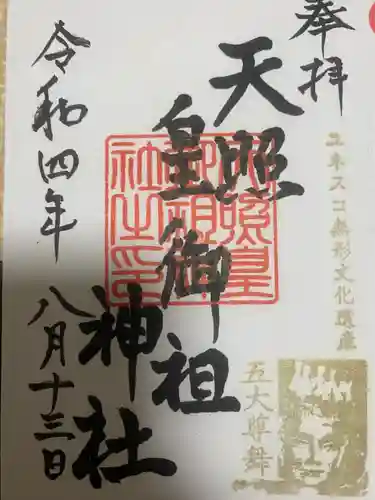 奉拝
天照
皇御祖
神社
令和四年
八月十三日
天照皇
御祖神
社之印
ユネスコ無形文化遺産
五大尊舞